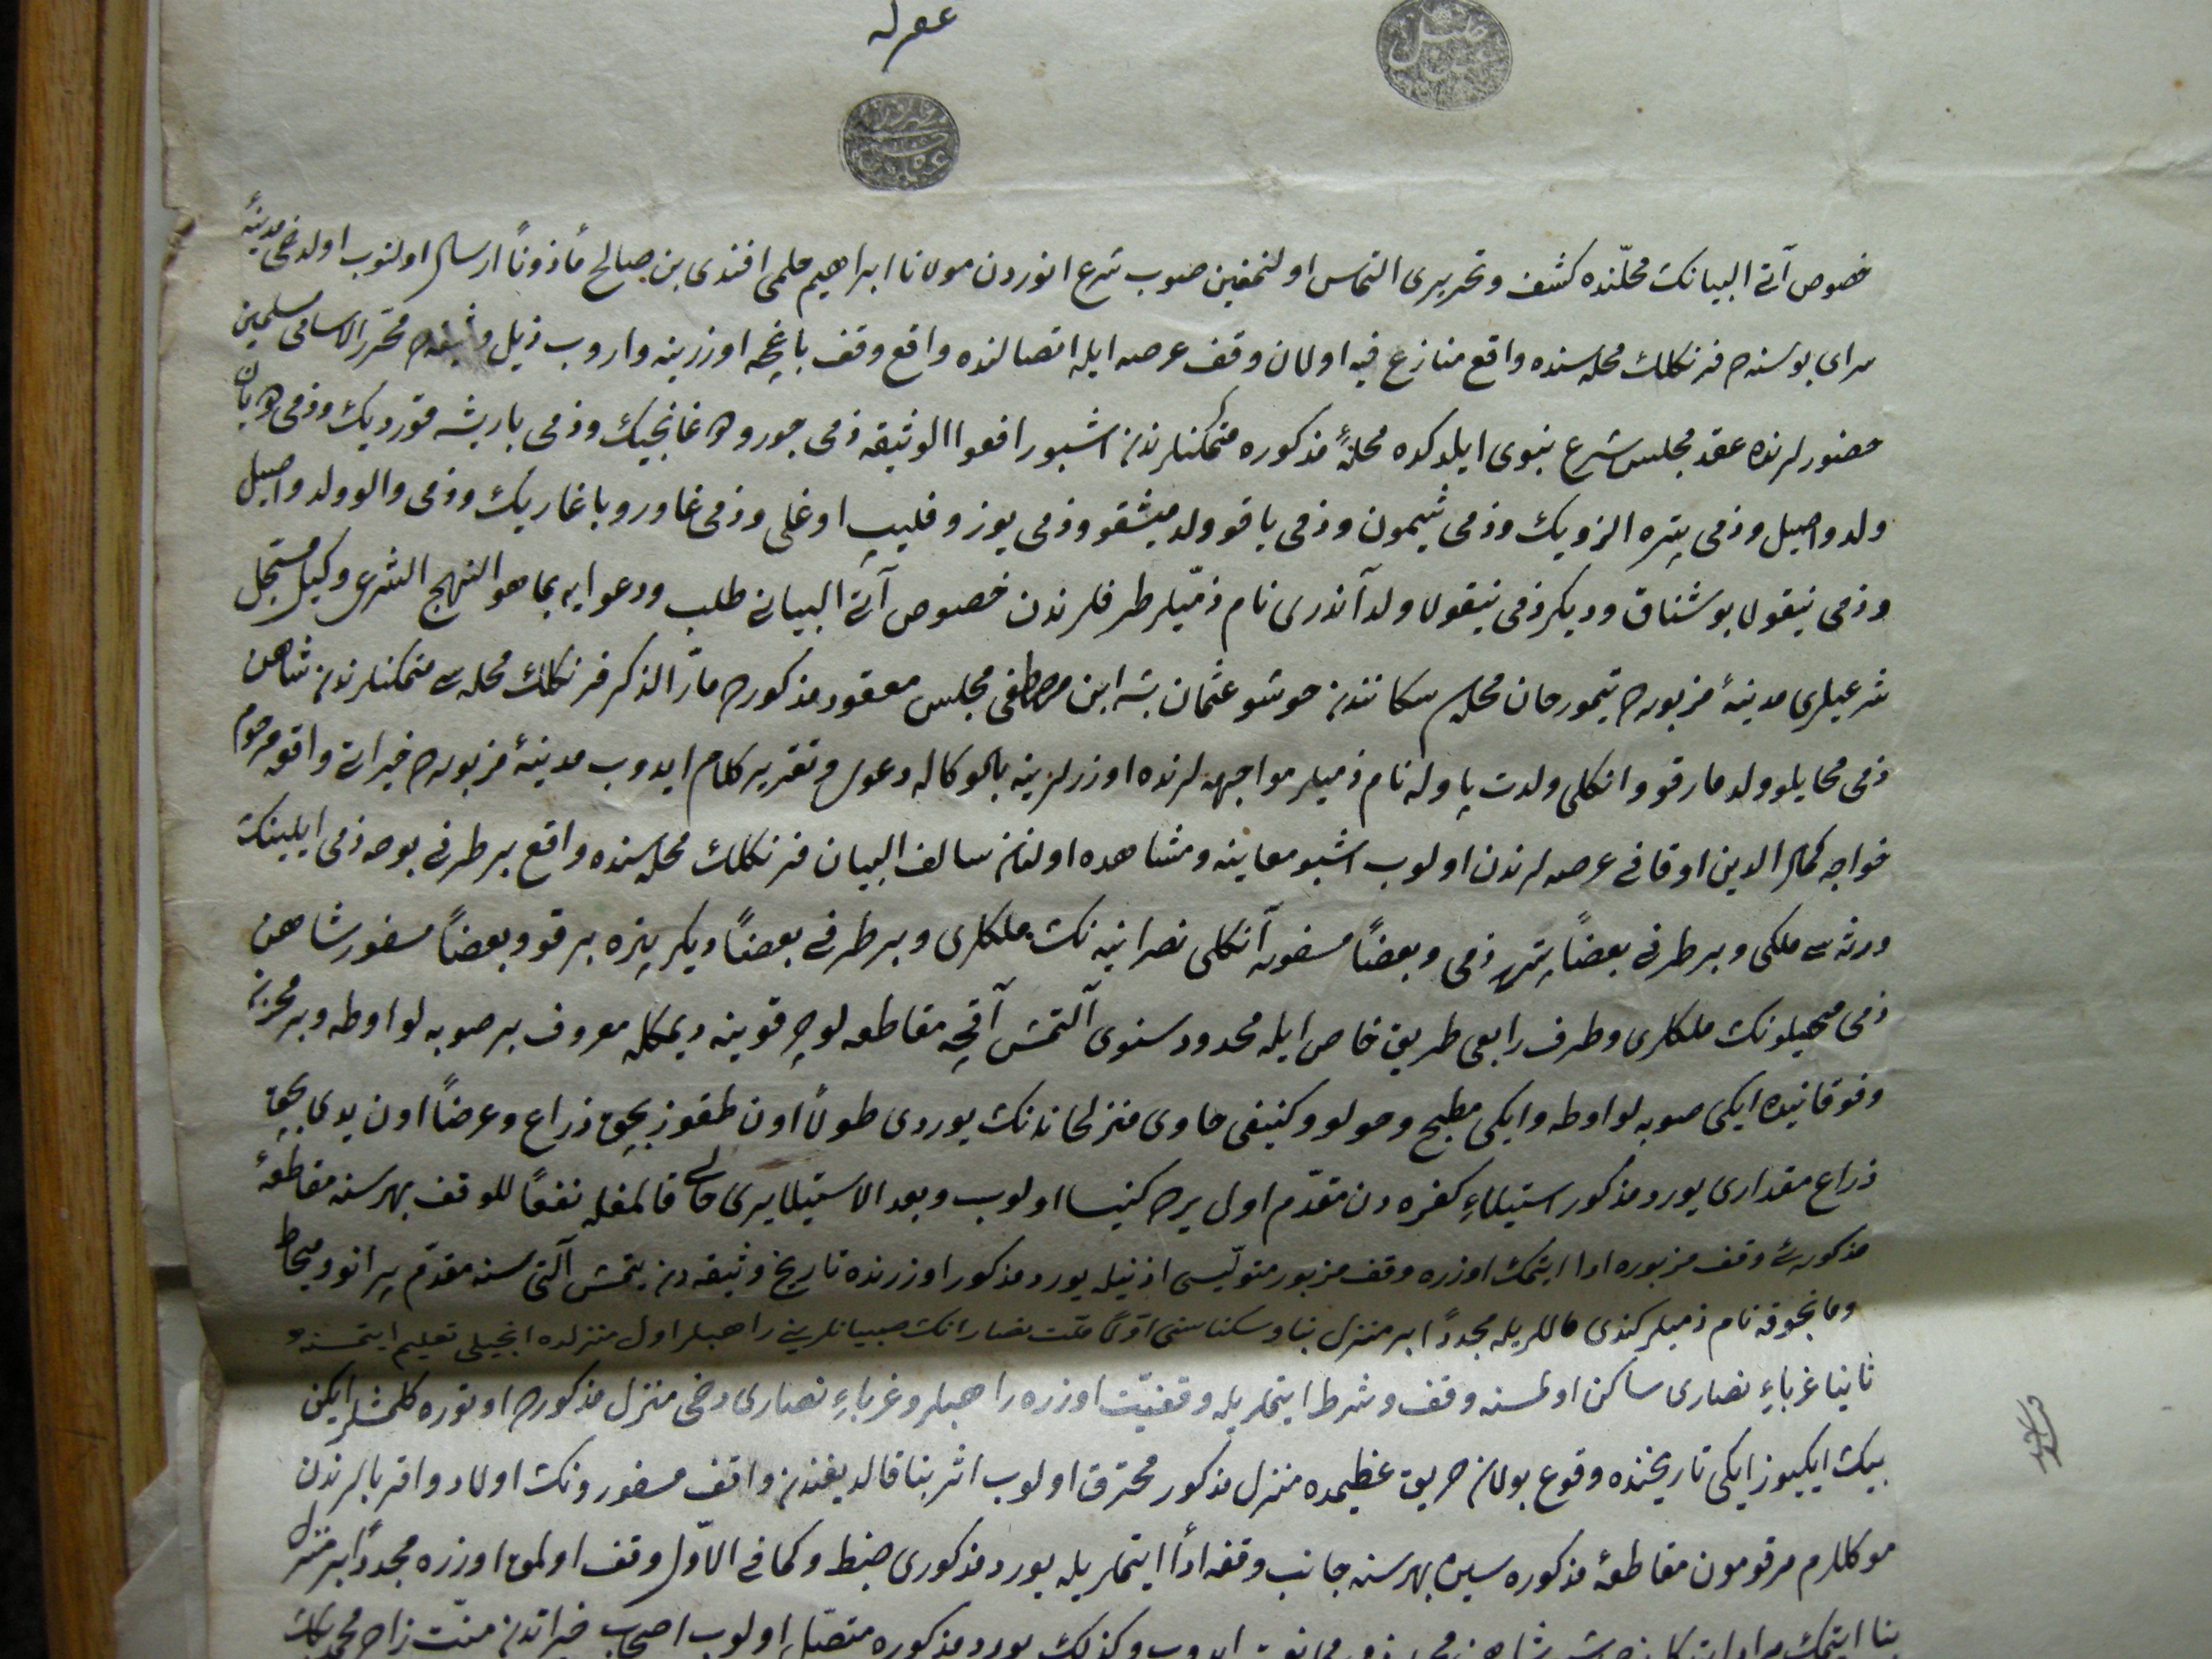 خصوص آتی البیانک محلّنده کشف و تحریری التماس اولنمغین صوب شرع انوردن مولانا ابراهیم حلمی افندی بن صالح مأذوناً ارسال اولنوب اولدخی مدینهٔ
سرای بوسنه‌ده فرنکلک محله‌سنده واقع منازع فیه اولان وقف عرصه ایله اتصالنده واقع وقف باغچه اوزرینه واروب ذیل وثیقه‌ده محرّر الاسامی مسلمین
حضورلرنده عقد مجلس شرع نبوی ایلدکده محلهٔ مذکوره متمکنلرندن اشبو رافعوا الوثیقه ذمی جورو غانجیک و ذمی باریشه قوردیک و ذمی
ولد واصیل و ذمی پتره الزویک و ذمی شیمون و ذمی یاقو ولد میشقو و ذمی یوزو فلیپ اوغلی و ذمی غاورو باغاریک و ذمی والو ولد واصیل
و ذمی نیقولا بوشناق و دیکر ذمی نیقولا ولد آندری نام ذمّیلر طرفلرندن خصوص آتی البیانی طلب و دعوایه بما هو النهج الشرعی وکیل مسجّل
شرعیلری مدینهٔ مزبوره‌ده تیمورخان محله‌سی سکانندن حوشو عثمان بشه ابن مصطفی مجلس معقود مذکورده مارّ الذکر فرنکلک محله‌سی متمکنلرندن شاهن
ذمی محایلو ولد مارقو و انکلی ولدت پاوله نام ذمیلر مواجهه‌لرنده اوزرلرینه بالوکاله دعوی و تقریر کلام ایدوب مدینهٔ مزبوره‌ده خیراتی واقع مرحوم
خواجه کمال الدین اوقافی عرصه‌لرندن اولوب اشبو معاینه و مشاهده اولنان سالف البیان فرنکلک محله‌سنده واقع بر طرفی بوصه ذمی ایلینک
ورثه‌سی ملکی و بر طرفی بعضاً پتره ذمی و بعضاً مسفوره آنکلی نصرانیه‌نک ملکلری و بر طرفی بعضاً دیکر پتره برقو و بعضاً مسفور شاهن
ذمی میحیلونک ملکلری و طرف رابعی طریق خاص ایله محدود سنوی آلتمش آقچه مقاطعه‌لو قوینه دیمکله معروف بر صوبه‌لو اوطه و بر مخزن
و فوقانیده ایکی صوبه‌لو اوطه و ایکی مطبخ و حولو و کنیفی حاوی منزلخانه‌نک یوردی طولاً اون طقوز بچق ذراع و عرضاً اون یدی بچق
ذراع مقداری یورد مذکور استیلاءِ کفره‌دن مقدّم اول یرده کنیسا اولوب و بعد الاستیلا یری خالی قالمغله نفعًا للوقف بهر سنه مقاطعهٔ
مذکوره‌یی وقف مزبوره ادا ایتمک اوزره وقف مزبور متولّیسی اذنیله یورد مذکور اوزرنده تاریخ وثیقه‌دن یتمش آلتی سنه مقدّم
نام ذمیلر کندی ماللریله مجدداً بر منزل بنا و سکناسنی اوّلا ملّت نصارانک صبیانلرینی راهبلر اول منزلده انجیلی تعلیم ایتمسنه و
ثانیا غرباءِ نصاری ساکن اولمسنه وقف و شرط ایتملریله وقفیّت اوزره راهبلر و غرباءِ نصاری دخی منزل مذکورده اوتوره کلمشلر ایکن
بیک ایکیوز ایکی تاریخنده وقوع بولان حریق عظیمده منزل مذکور محترق اولوب اثر بنا قالدیغندن واقف مسفورونک اولاد و اقربالرندن
موکللرم مرقومون مقاطعهٔ مذکوره‌سین بهر سنه جانب وقفه ادأ ایتملریله یورد مذکوری ضبط و کما فی الاوّل وقف اولمق اوزره مجدداً بر منزل
بنا ایتمک مراد ایتدکلرنده ایدوب و کذلک یورد مذکوره متصّل اولوب اصحاب خیراتدن منّت زاده محمد بک